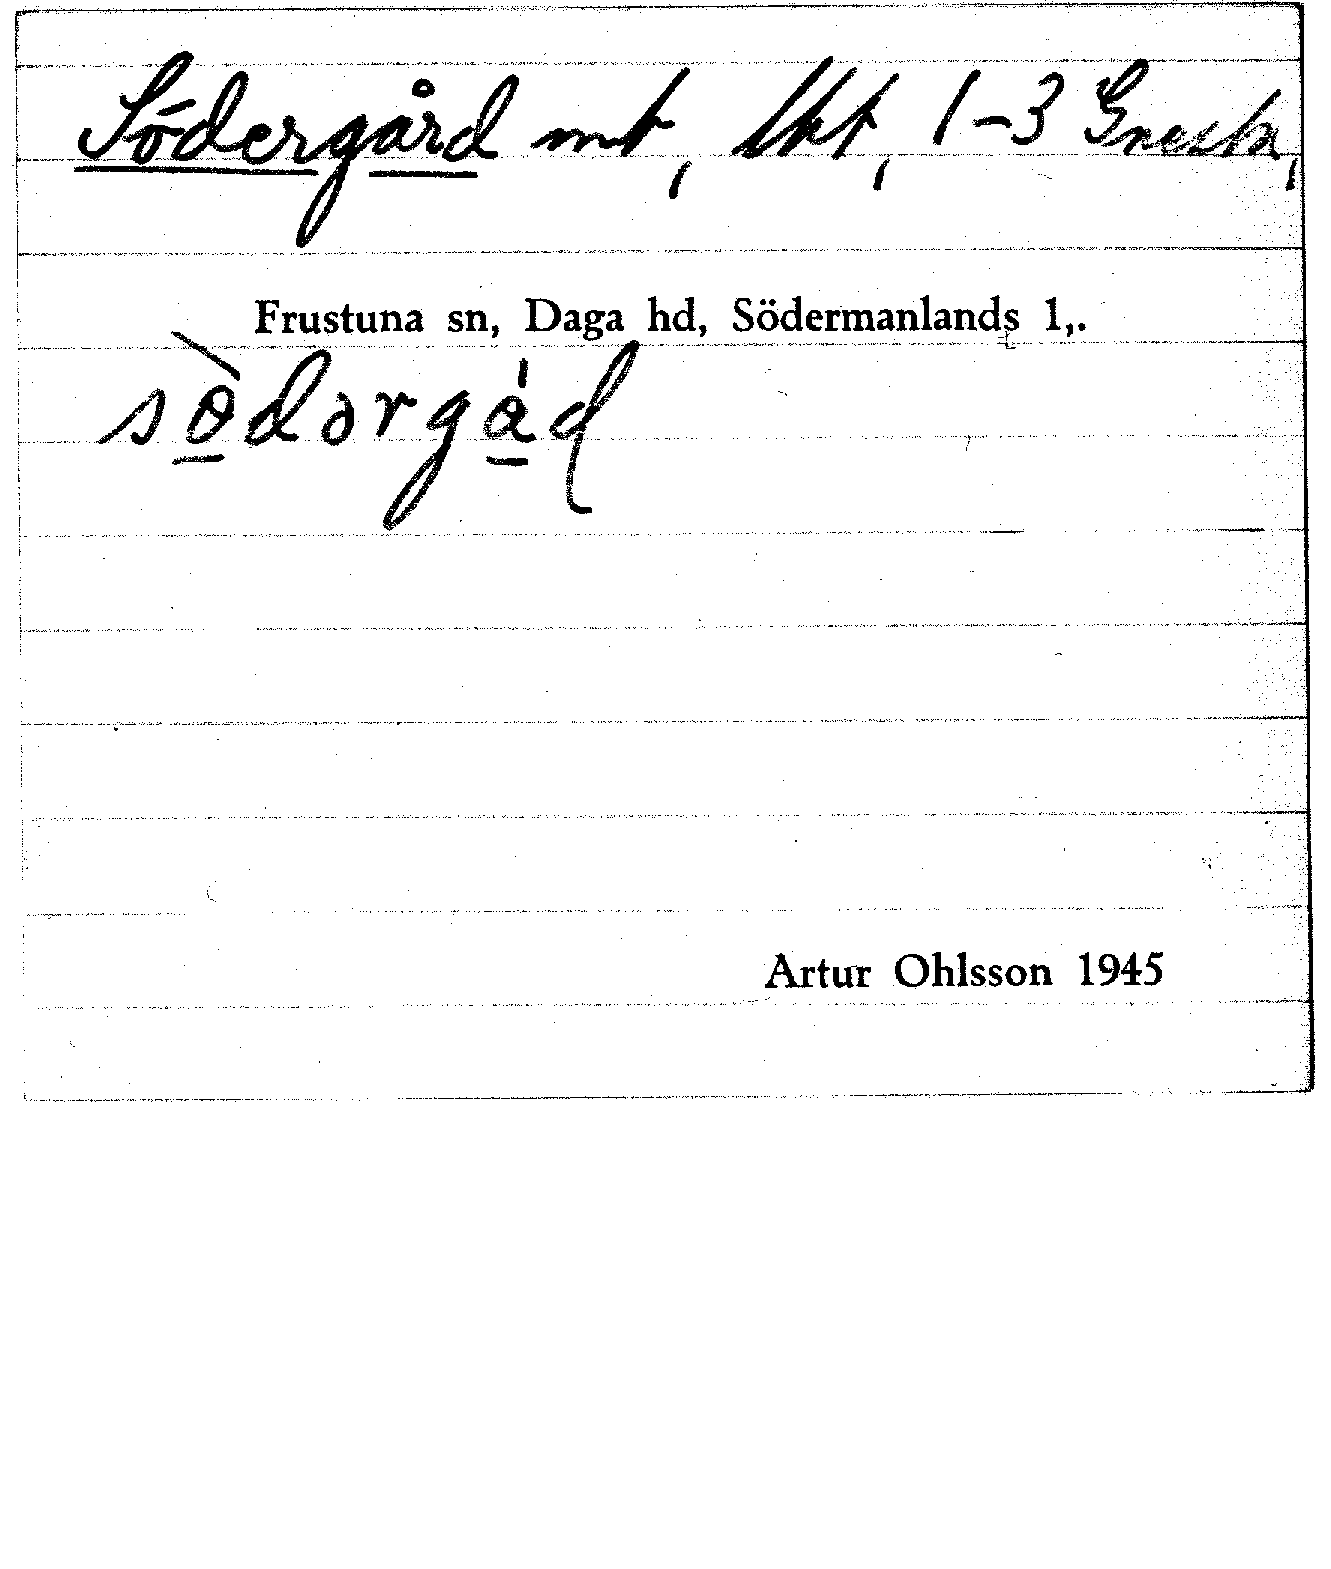 Södergård mt, lht, 1-3 Gnesta,
Frustuna sn, Daga hd, Södermanlands l,.
södərgåd
Artur Ohlsson 1945